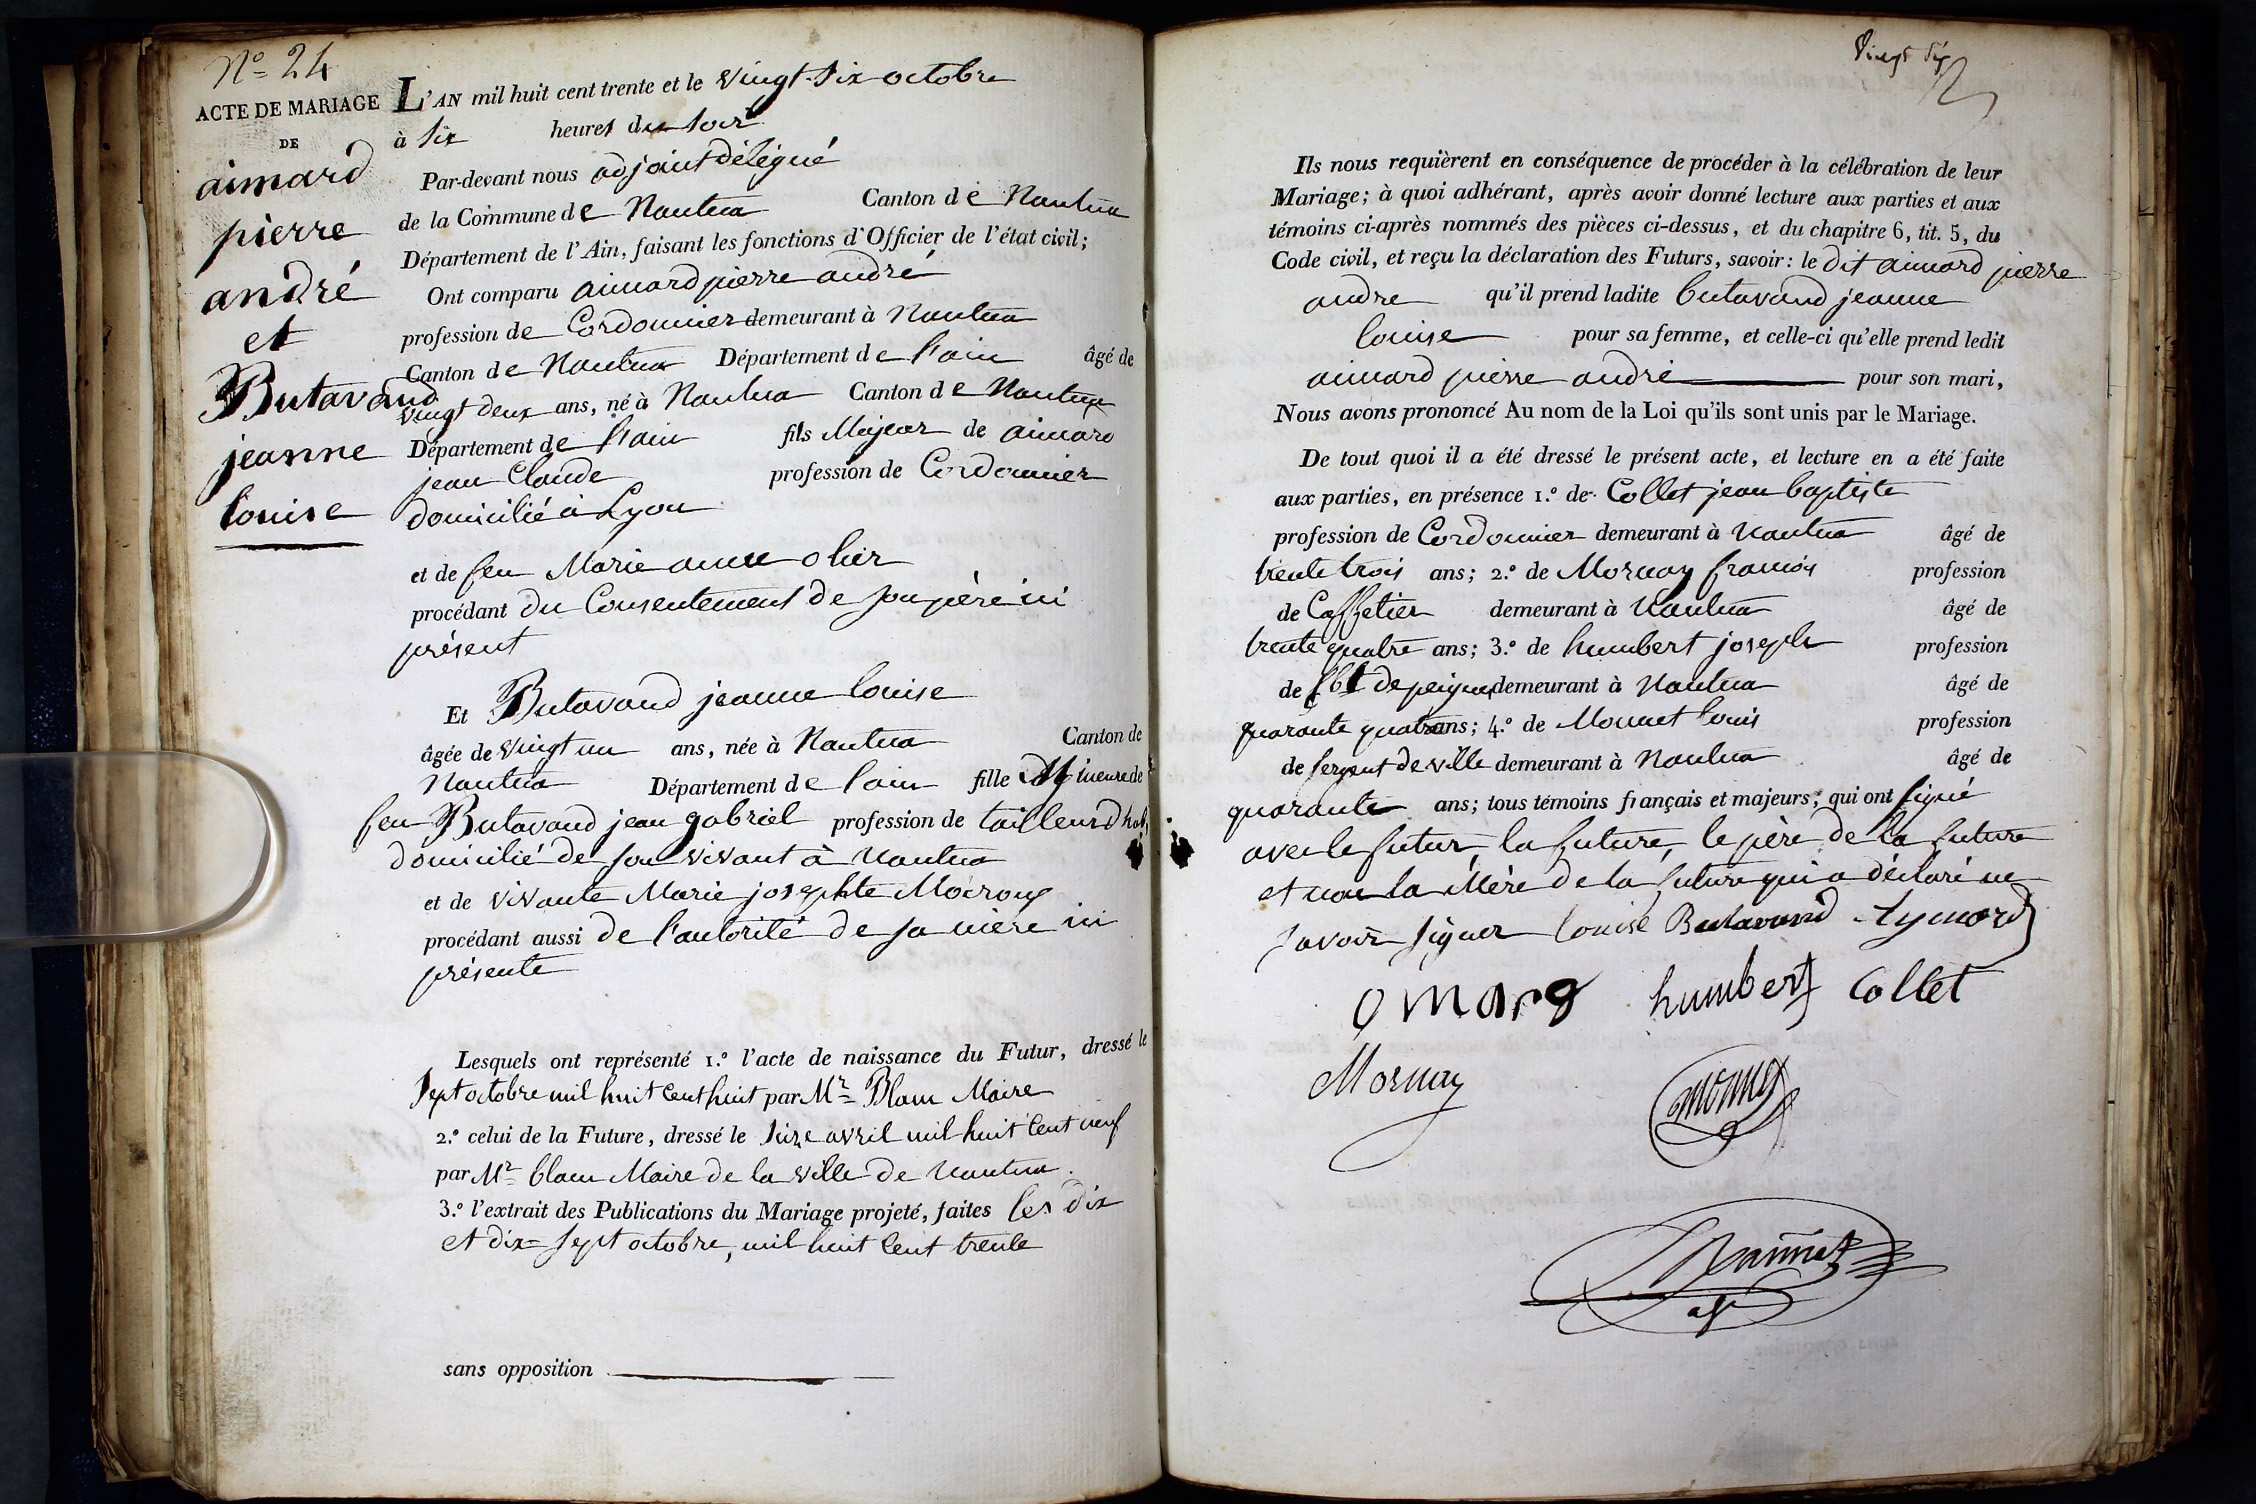 N.° 24
ACTE DE MARIAGE
DE
aimard
pierre
andré
et
Butavand
jeanne
louise
L'AN mil huit cent trente et le vingt-six octobre
à six heures du soir
Par-devant nous adjoint délégué
de la Commune de Nantua Canton de Nantua
Département de l'Ain, faisant les fonctions d'Officier de l'état civil;
Ont comparu aimard pierre andré
profession de Cordonnier demeurant à Nantua
Canton de Nantua Département de l'ain âgé de
vingt deux ans, né à Nantua Canton de Nantua
Département de l'ain fils Majeur de aimard
jean Claude profession de Cordonnier
domicilié à Lyon
et de feu Marie anne olier
procédant du Consentement de son père ici
présent
Et Butavand jeanne louise
âgée de vingt un ans, née à Nantua Canton de
Nantua Département de l'ain fille Mineure de
feu Butavand jean gabriel profession de tailleur d'hab.
domicilié de son vivant à Nantua
et de vivante Marie josephte
procédant aussi de l'autorité de sa mère ici
présente
Lesquels ont représenté 1.° l'acte de naissance du Futur, dressé le
sept octobre mil huit cent huit par Mr Blanc Maire
2.° celui de la Future, dressé le seize avril mil huit cent neuf
par Mr blanc Maire de la ville de Nantua.
3.° l'extrait des Publications du Mariage projeté, faites les dix
et dix-sept octobre, mil huit cent trente
sans opposition
vingt six
Ils nous requièrent en conséquence de procéder à la célébration de leur
Mariage; à quoi adhérant, après avoir donné lecture aux parties et aux
témoins ci-après nommés des pièces ci-dessus, et du chapitre 6, tit. 5, du
Code civil, et reçu la déclaration des Futurs, savoir: le dit aimard pierre
andre qu'il prend ladite butavand jeanne
louise pour sa femme, et celle-ci qu'elle prend ledit
aimard pierre andré pour son mari,
Nous avons prononcé Au nom de la Loi qu'ils sont unis par le Mariage.
De tout quoi il a été dressé le présent acte, et lecture en a été faite
aux parties, en présence 1.° de Collet jean baptiste
profession de Cordonnier demeurant à Nantua âgé de
trente trois ans; 2.° de Mornay françois profession
de Caffetier demeurant à Nantua âgé de
trente quatre ans; 3.° de humbert joseph profession
de fbt de peignes demeurant à Nantua âgé de
quarante quatre ans; 4.° de Monnet louis profession
de sergent de ville demeurant à Nantua âgé de
quarante ans; tous témoins français et majeurs, qui ont signé
avec le futur, la future, le père de la future
et non la Mère de la future qui a déclaré ne
savoir signer louise Butavand Aymard
humbert Collet
Mornay
monnet